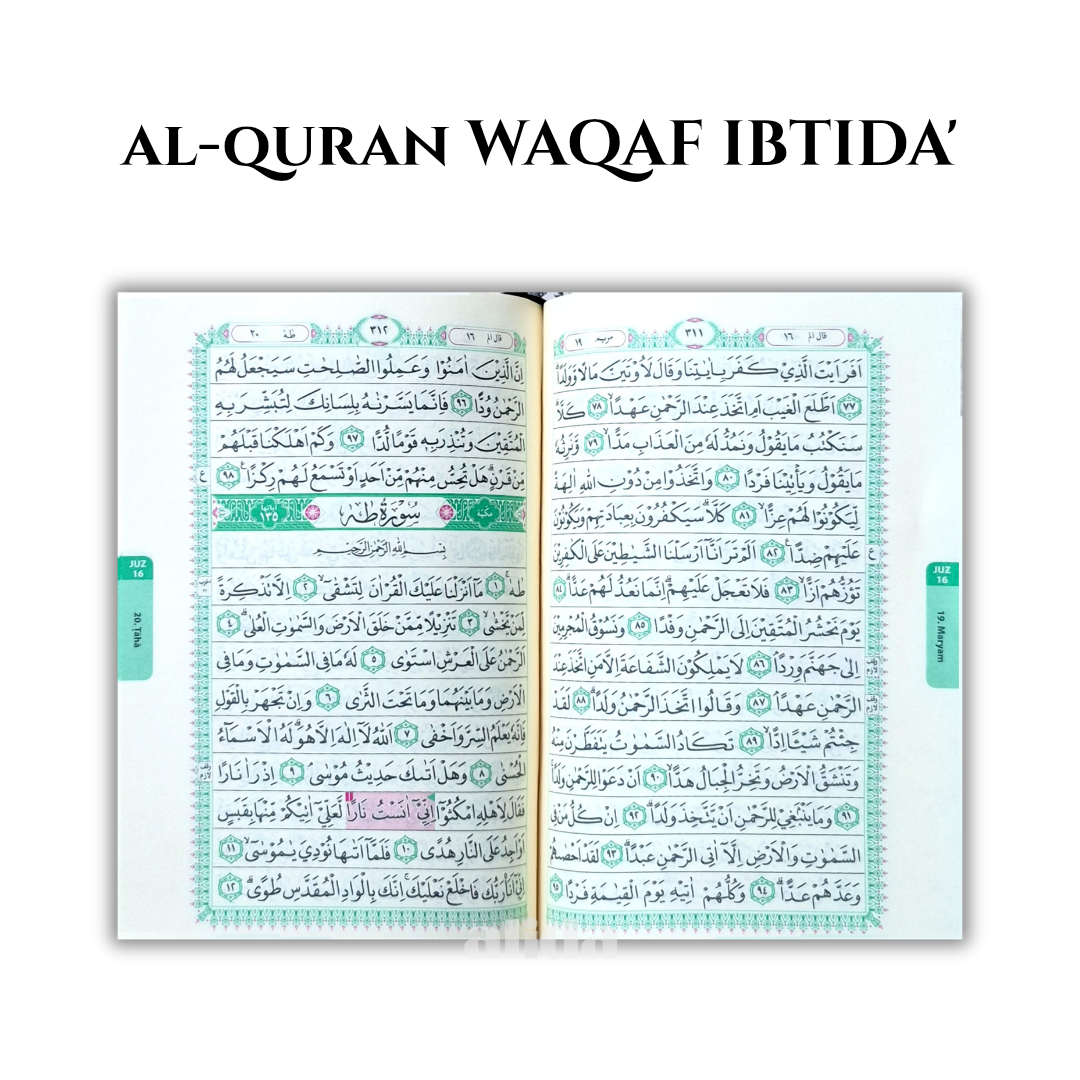 AL-QURAN WAQAF IBTIDA'
قال الم ١٦
٣١١
مريم ١٩
اَفَرَاَيْتَ الَّذِيْ كَفَرَ بِاٰيٰتِنَا وَقَالَ لَاُوْتَيَنَّ مَالًا وَّوَلَدًاۗ
٧٧ اَطَّلَعَ الْغَيْبَ اَمِ اتَّخَذَ عِنْدَ الرَّحْمٰنِ عَهْدًاۙ ٧٨ كَلَّاۗ
سَنَكْتُبُ مَا يَقُوْلُ وَنَمُدُّ لَهٗ مِنَ الْعَذَابِ مَدًّاۙ ٧٩ وَّنَرِثُهٗ
مَا يَقُوْلُ وَيَأْتِيْنَا فَرْدًا ٨٠ وَاتَّخَذُوْا مِنْ دُوْنِ اللّٰهِ اٰلِهَةً
لِّيَكُوْنُوْا لَهُمْ عِزًّاۙ ٨١ كَلَّاۗ سَيَكْفُرُوْنَ بِعِبَادَتِهِمْ وَيَكُوْنُوْنَ
عَلَيْهِمْ ضِدًّاࣖ ٨٢ اَلَمْ تَرَ اَنَّآ اَرْسَلْنَا الشَّيٰطِيْنَ عَلَى الْكٰفِرِيْنَ
تَؤُزُّهُمْ اَزًّاۙ ٨٣ فَلَا تَعْجَلْ عَلَيْهِمْۗ اِنَّمَا نَعُدُّ لَهُمْ عَدًّاۗ ٨٤
يَوْمَ نَحْشُرُ الْمُتَّقِيْنَ اِلَى الرَّحْمٰنِ وَفْدًاۙ ٨٥ وَنَسُوْقُ الْمُجْرِمِيْنَ
اِلٰى جَهَنَّمَ وِرْدًاۘ ٨٦ لَا يَمْلِكُوْنَ الشَّفَاعَةَ اِلَّا مَنِ اتَّخَذَ عِنْدَ
الرَّحْمٰنِ عَهْدًاۘ ٨٧ وَقَالُوا اتَّخَذَ الرَّحْمٰنُ وَلَدًاۗ ٨٨ لَقَدْ
جِئْتُمْ شَيْـًٔا اِدًّاۙ ٨٩ تَكَادُ السَّمٰوٰتُ يَتَفَطَّرْنَ مِنْهُ
وَتَنْشَقُّ الْاَرْضُ وَتَخِرُّ الْجِبَالُ هَدًّاۙ ٩٠ اَنْ دَعَوْا لِلرَّحْمٰنِ وَلَدًاۚ
٩١ وَمَا يَنْۢبَغِيْ لِلرَّحْمٰنِ اَنْ يَّتَّخِذَ وَلَدًاۗ ٩٢ اِنْ كُلُّ مَنْ فِى
السَّمٰوٰتِ وَالْاَرْضِ اِلَّآ اٰتِى الرَّحْمٰنِ عَبْدًاۗ ٩٣ لَقَدْ اَحْصٰىهُمْ
وَعَدَّهُمْ عَدًّاۗ ٩٤ وَكُلُّهُمْ اٰتِيْهِ يَوْمَ الْقِيٰمَةِ فَرْدًا ٩٥
JUZ
16
19. Maryam
قال الم ١٦
٣١٢
طٰهٰ ٢٠
اِنَّ الَّذِيْنَ اٰمَنُوْا وَعَمِلُوا الصّٰلِحٰتِ سَيَجْعَلُ لَهُمُ
الرَّحْمٰنُ وُدًّا ٩٦ فَاِنَّمَا يَسَّرْنٰهُ بِلِسَانِكَ لِتُبَشِّرَ بِهِ
الْمُتَّقِيْنَ وَتُنْذِرَ بِهٖ قَوْمًا لُّدًّا ٩٧ وَكَمْ اَهْلَكْنَا قَبْلَهُمْ
مِّنْ قَرْنٍۗ هَلْ تُحِسُّ مِنْهُمْ مِّنْ اَحَدٍ اَوْ تَسْمَعُ لَهُمْ رِكْزًاࣖ ٩٨
مكية سُوْرَةُ طٰهٰ اٰياتها ١٣٥
بِسْمِ اللّٰهِ الرَّحْمٰنِ الرَّحِيْمِ
طٰهٰۚ ١ مَآ اَنْزَلْنَا عَلَيْكَ الْقُرْاٰنَ لِتَشْقٰٓىۙ ٢ اِلَّا تَذْكِرَةً
لِّمَنْ يَّخْشٰىۙ ٣ تَنْزِيْلًا مِّمَّنْ خَلَقَ الْاَرْضَ وَالسَّمٰوٰتِ الْعُلٰىۗ ٤
اَلرَّحْمٰنُ عَلَى الْعَرْشِ اسْتَوٰى ٥ لَهٗ مَا فِى السَّمٰوٰتِ وَمَا فِى
الْاَرْضِ وَمَا بَيْنَهُمَا وَمَا تَحْتَ الثَّرٰى ٦ وَاِنْ تَجْهَرْ بِالْقَوْلِ
فَاِنَّهٗ يَعْلَمُ السِّرَّ وَاَخْفٰى ٧ اَللّٰهُ لَآ اِلٰهَ اِلَّا هُوَۗ لَهُ الْاَسْمَاۤءُ
الْحُسْنٰى ٨ وَهَلْ اَتٰىكَ حَدِيْثُ مُوْسٰىۘ ٩ اِذْ رَاٰ نَارًا
فَقَالَ لِاَهْلِهِ امْكُثُوْٓا اِنِّيْٓ اٰنَسْتُ نَارًا لَّعَلِّيْٓ اٰتِيْكُمْ مِّنْهَا بِقَبَسٍ
اَوْ اَجِدُ عَلَى النَّارِ هُدًى ١٠ فَلَمَّآ اَتٰىهَا نُوْدِيَ يٰمُوْسٰىۙ ١١
اِنِّيْٓ اَنَا۠ رَبُّكَ فَاخْلَعْ نَعْلَيْكَۚ اِنَّكَ بِالْوَادِ الْمُقَدَّسِ طُوًىۗ ١٢
JUZ
16
20. Ṭāhā